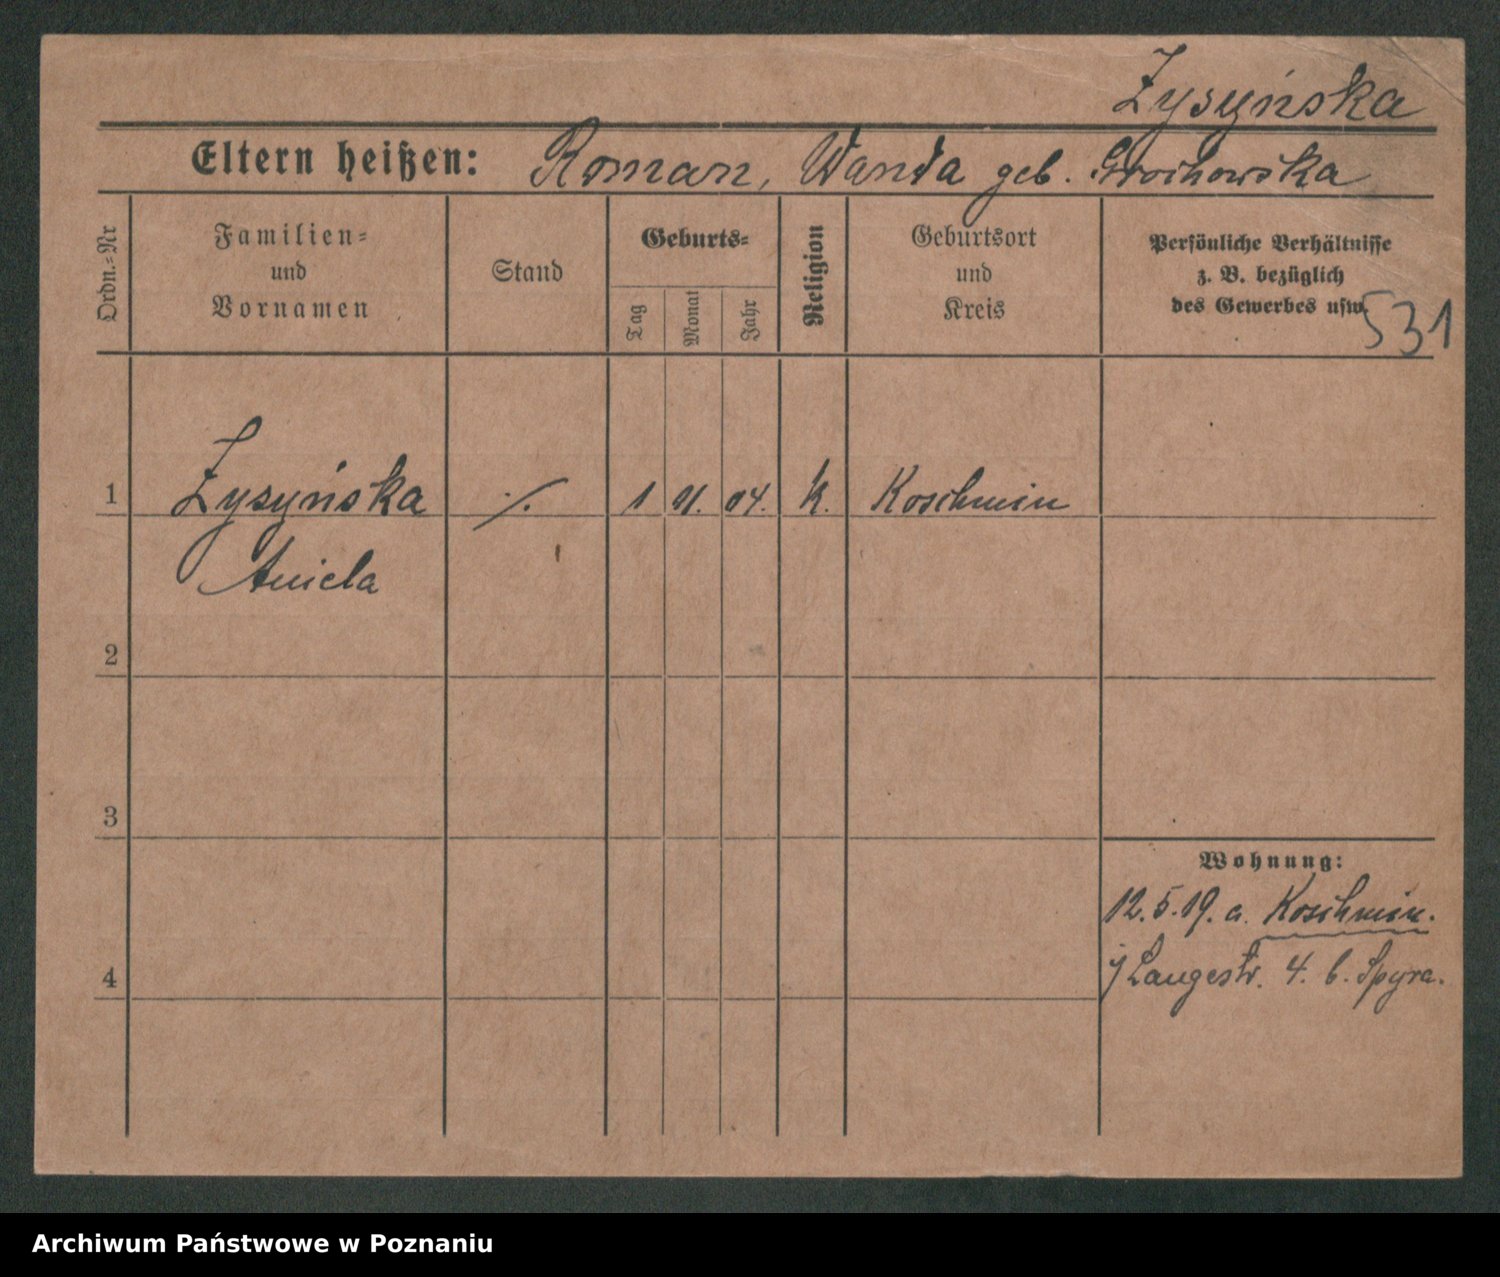 Zysyńska
Eltern heißen: Roman, Wanda geb. Grochowska
Ordn.=Nr
Familien=
und
Vornamen
Stand
Geburts=
Tag
Monat
Jahr
Religion
Geburtsort
und
Kreis
Persönliche Verhältnisse
z. B. bezüglich
des Gewerbes usw.
531
1 Zysyńska ·/. 1 11. 04. k. Koschmin
Aniela
2
3
Wohnung:
12.5.19. a. Koschmin.
Langestr. 4. b. Spyra.
4
Archiwum Państwowe w Poznaniu